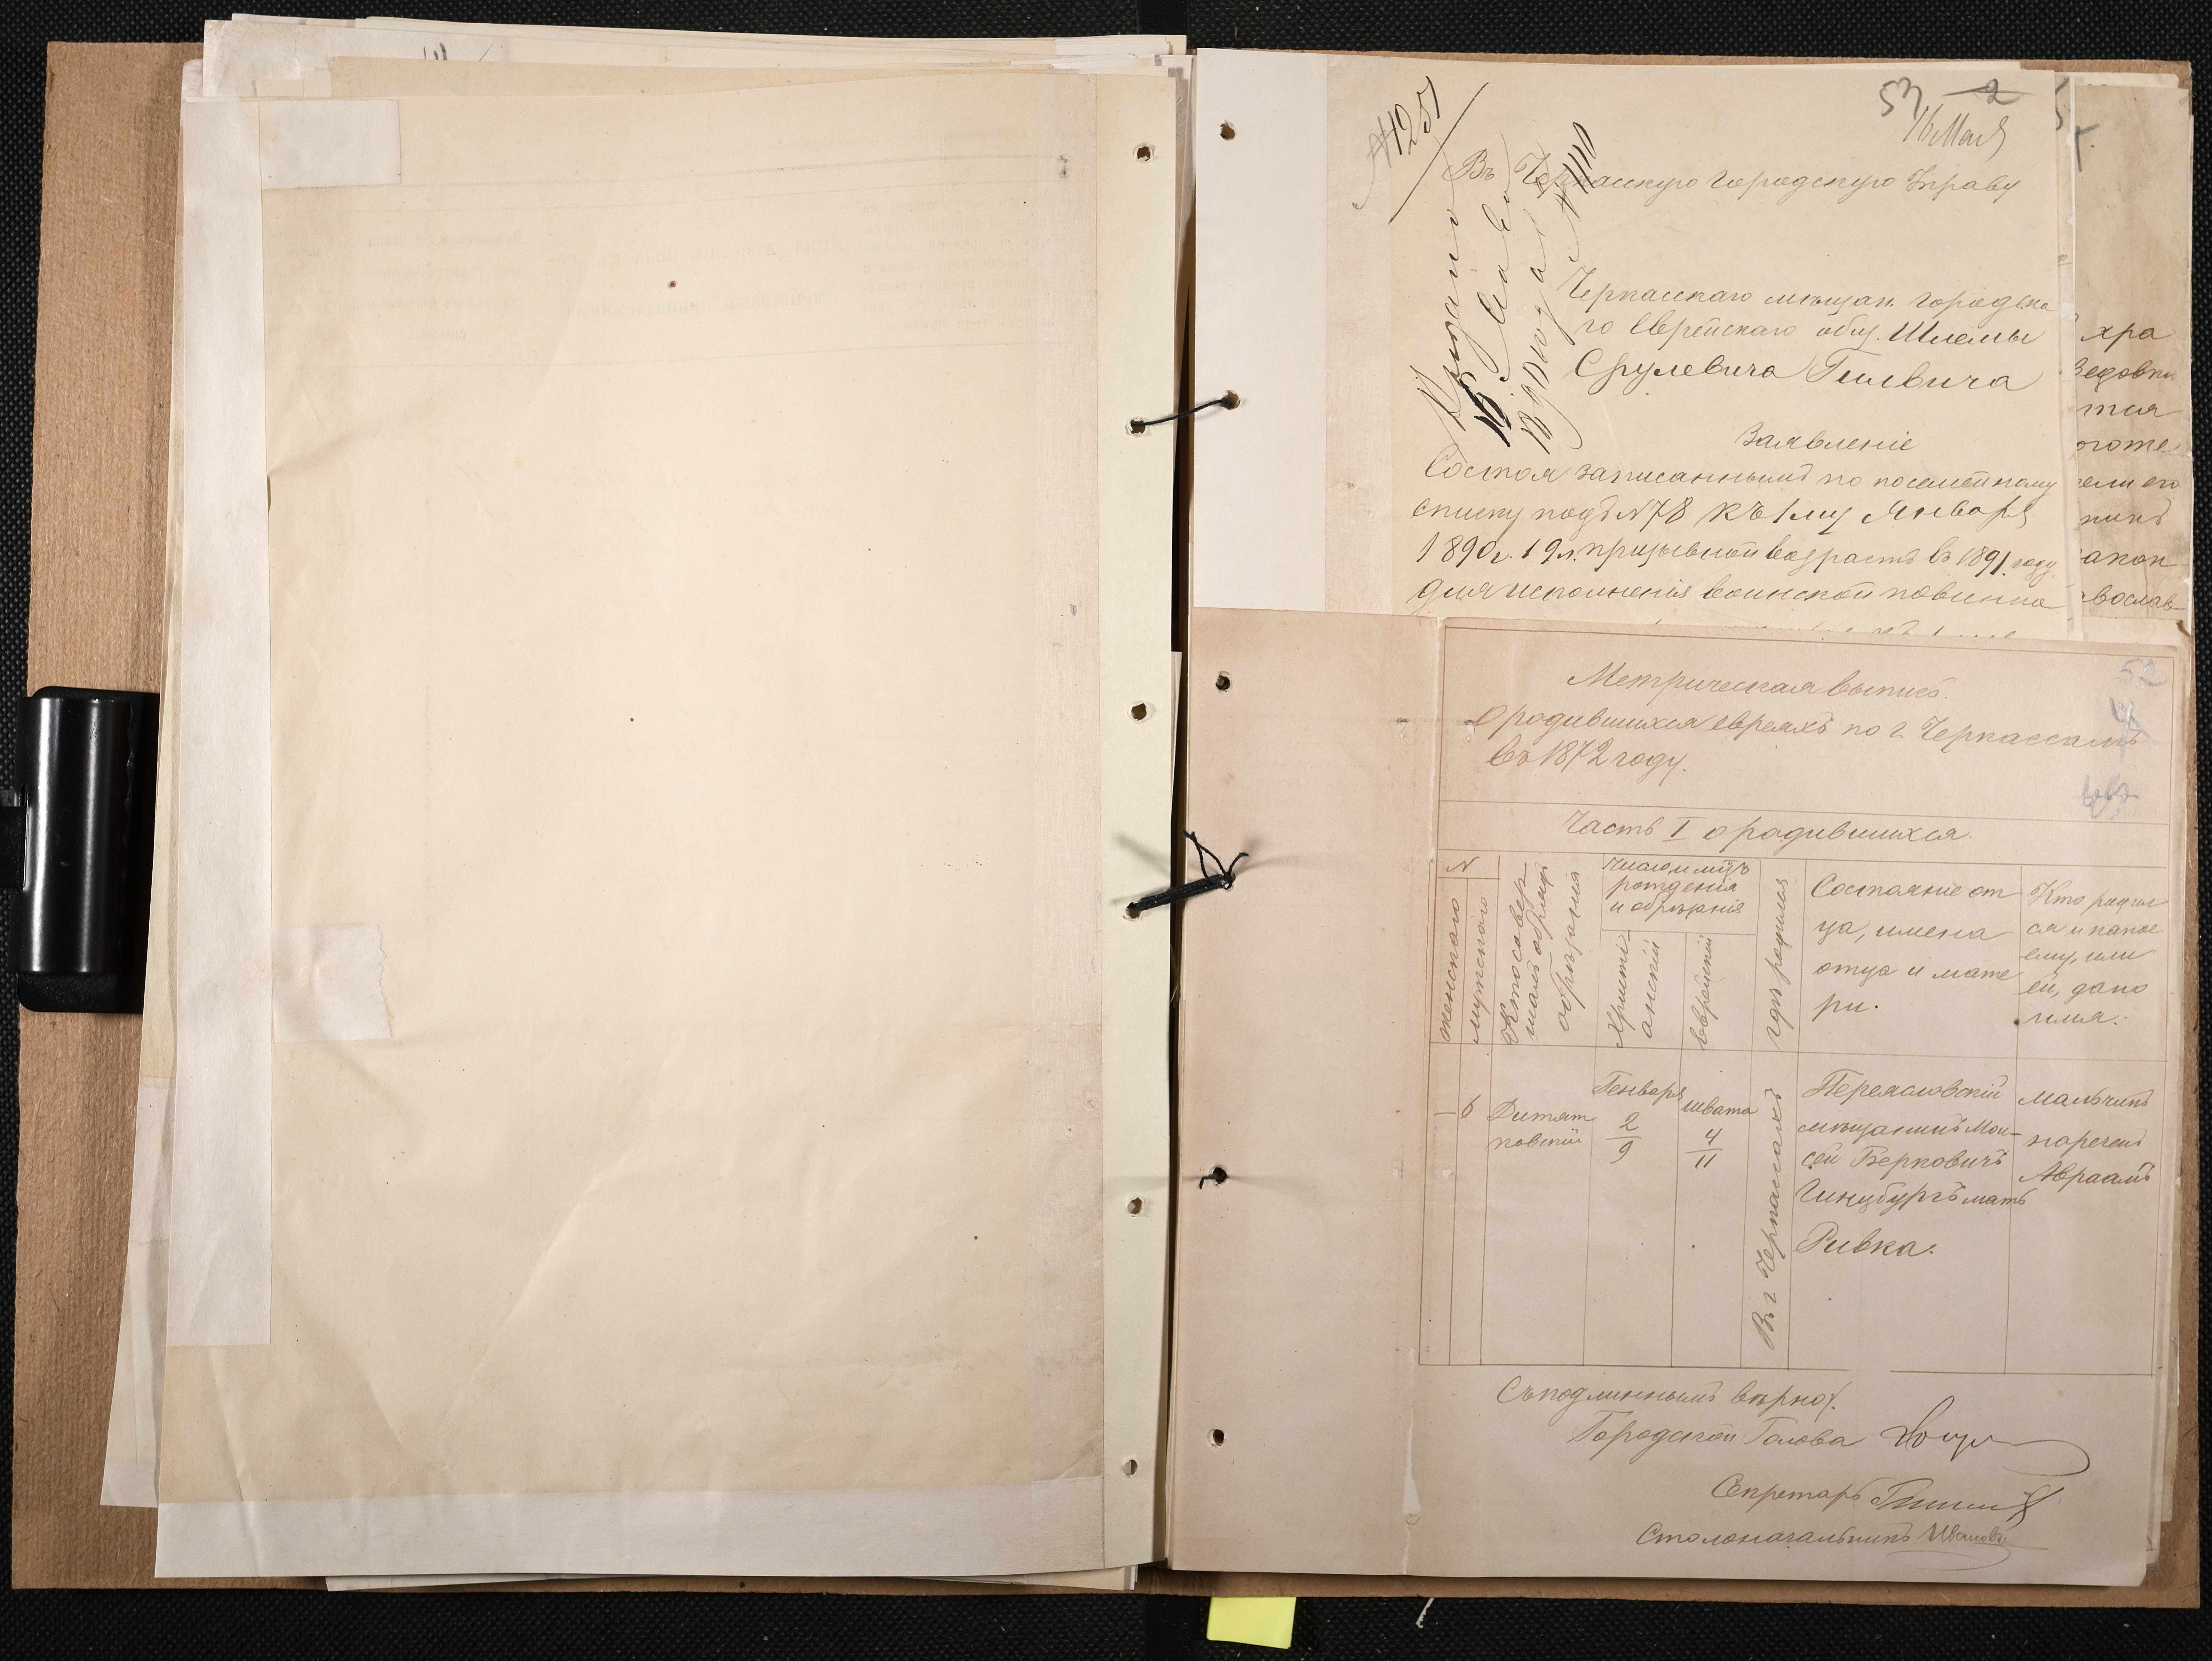 53 2
16 Мая
№ 4251
Въ Черкасскую Городскую Управу
Черкасскаго мѣщан. городска
го Еврейскаго общ. Шлемы
Срулевича
Заявленіе
Состоя записаннымъ по посемейному
списку подъ №78 къ 1му Января
1890г. 19 л. призывной возрастъ въ 1891 году
для исполненія воинской повинно
хра
тся
ели его
вослав
52
Метрическая выпись.
О родившихся евреяхъ по г. Черкассамъ
въ 1872 году.
Часть I о родившихся.
N
женскаго
мужскаго
Кто совер
шалъ обрядъ
обрѣзанія
Число и мѣц.
рожденія
и обрѣзанія
Христі-
анскій
Еврейскій
Гдѣ родился
Состояніе от
ца, имена
отца и мате
ри.
Кто родил
ся и какое
ему, или
ей, дано
имя.
— 6
Дитят
ковскій
Генваря
2
9
швата
4
11
Въ г Черкассахъ
Переяславскій
мѣщанинъ Мои-
сей Берковичъ
Гинцбургъ мать
Ривка.
мальчикъ
нареченъ
Авраамъ
Съ подлиннымъ вѣрно:
Городской Голова
Секретарь
Столоначальникъ Иванов